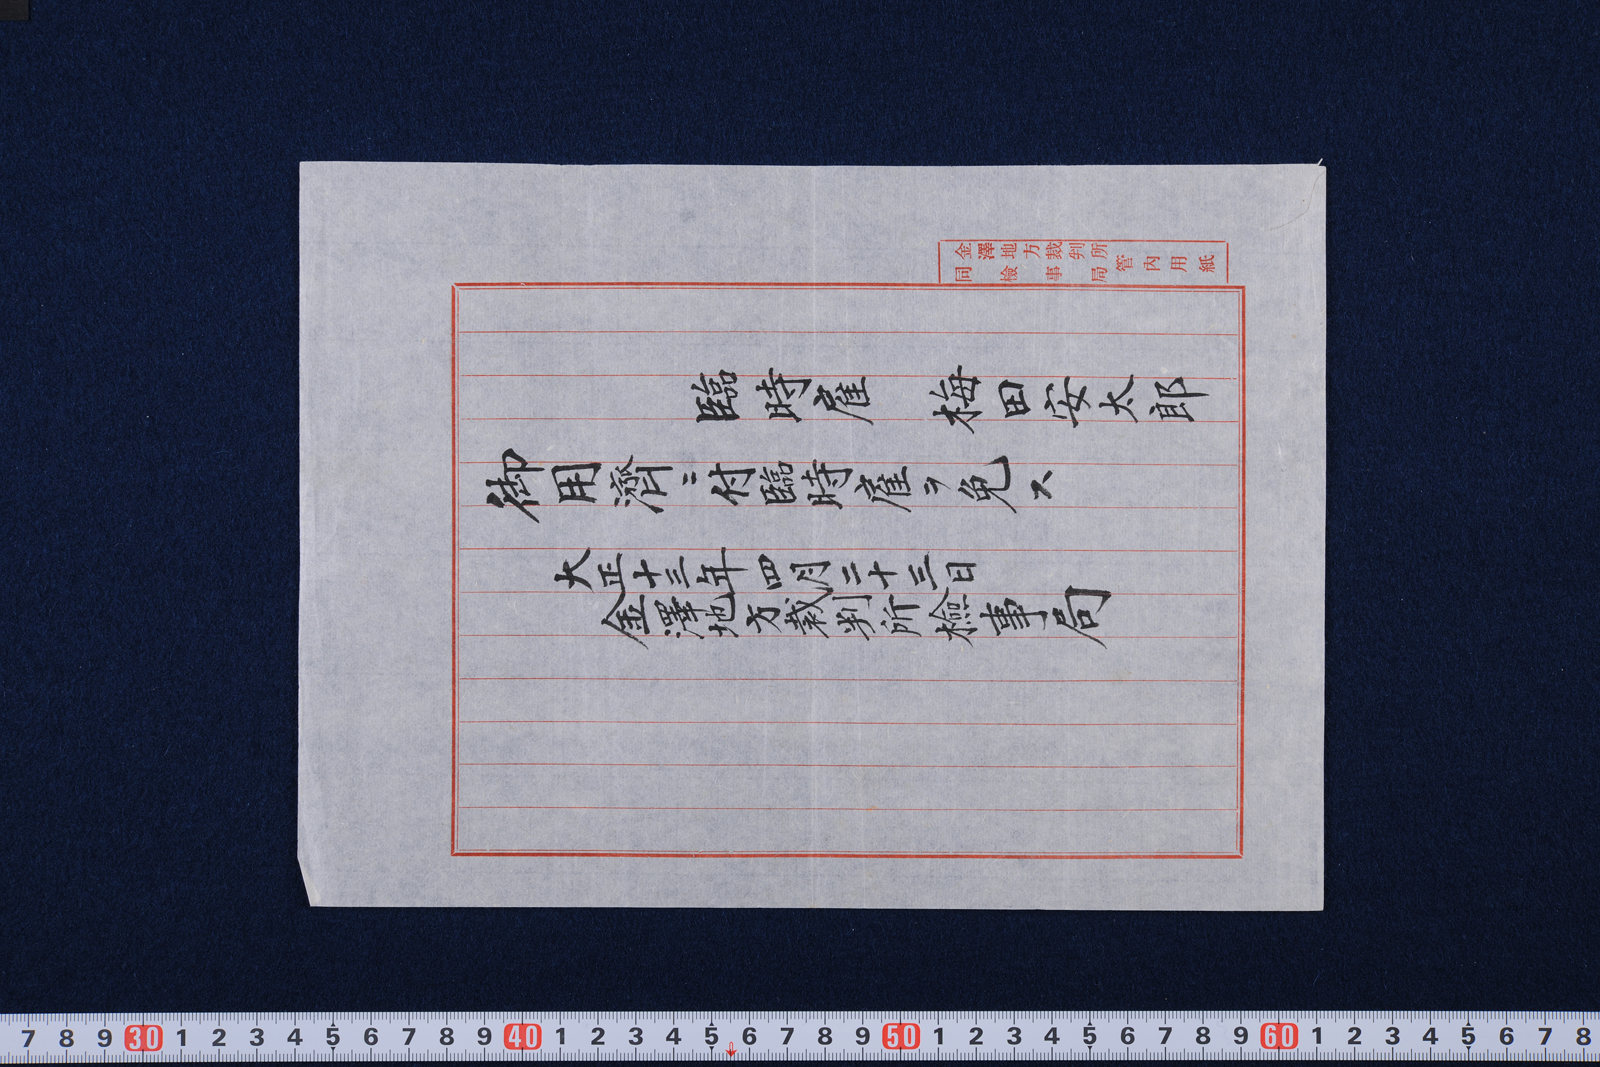 金澤地方裁判所
同檢事局管內用紙
臨時雇 梅田安太郎
御用濟ニ付臨時雇ヲ免ス
大正十三年四月二十三日
金澤地方裁判所檢事局
7 8 9 30 1 2 3 4 5 6 7 8 9 40 1 2 3 4 5 6 7 8 9 50 1 2 3 4 5 6 7 8 9 60 1 2 3 4 5 6 7 8